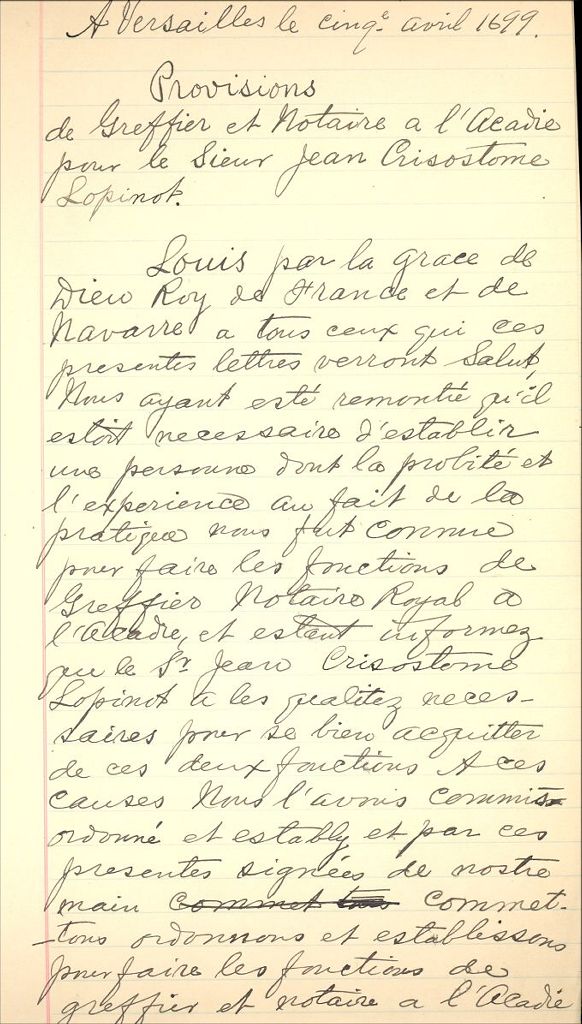 A Versailles le cinqe avril 1699.
Provisions
de Greffier et Notaire a l'Acadie
pour le Sieur Jean Crisostome
Lopinot.
Louis par la grace de
Dieu Roy de France et de
Navarre a tous ceux qui ces
presentes lettres verront Salut,
Nous ayant esté remontré qu'il
estoit necessaire d'establir
une personne dont la probité et
l'experience au fait de la
pratique nous fut connue
pour faire les fonctions de
Greffier Notaire Royal a
l'Acadie, et estant informez
que le Sr Jean Crisostome
Lopinot a les qualitez neces-
saires pour se bien acquitter
de ces deux fonctions A ces
causes Nous l'avons commis
ordonné et estably et par ces
presentes signées de nostre
main commet tous commet-
tons ordonnons et establissons
pour faire les fonctions de
greffier et notaire a l'Acadie